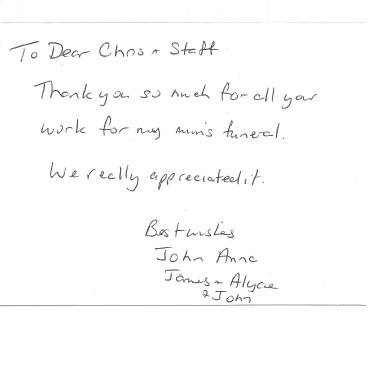 To Dear Chris + Staff
Thank you so much for all your
work for my mum's funeral.
We really appreciated it.
Best wishes
John Anne
James + Alycie
& John